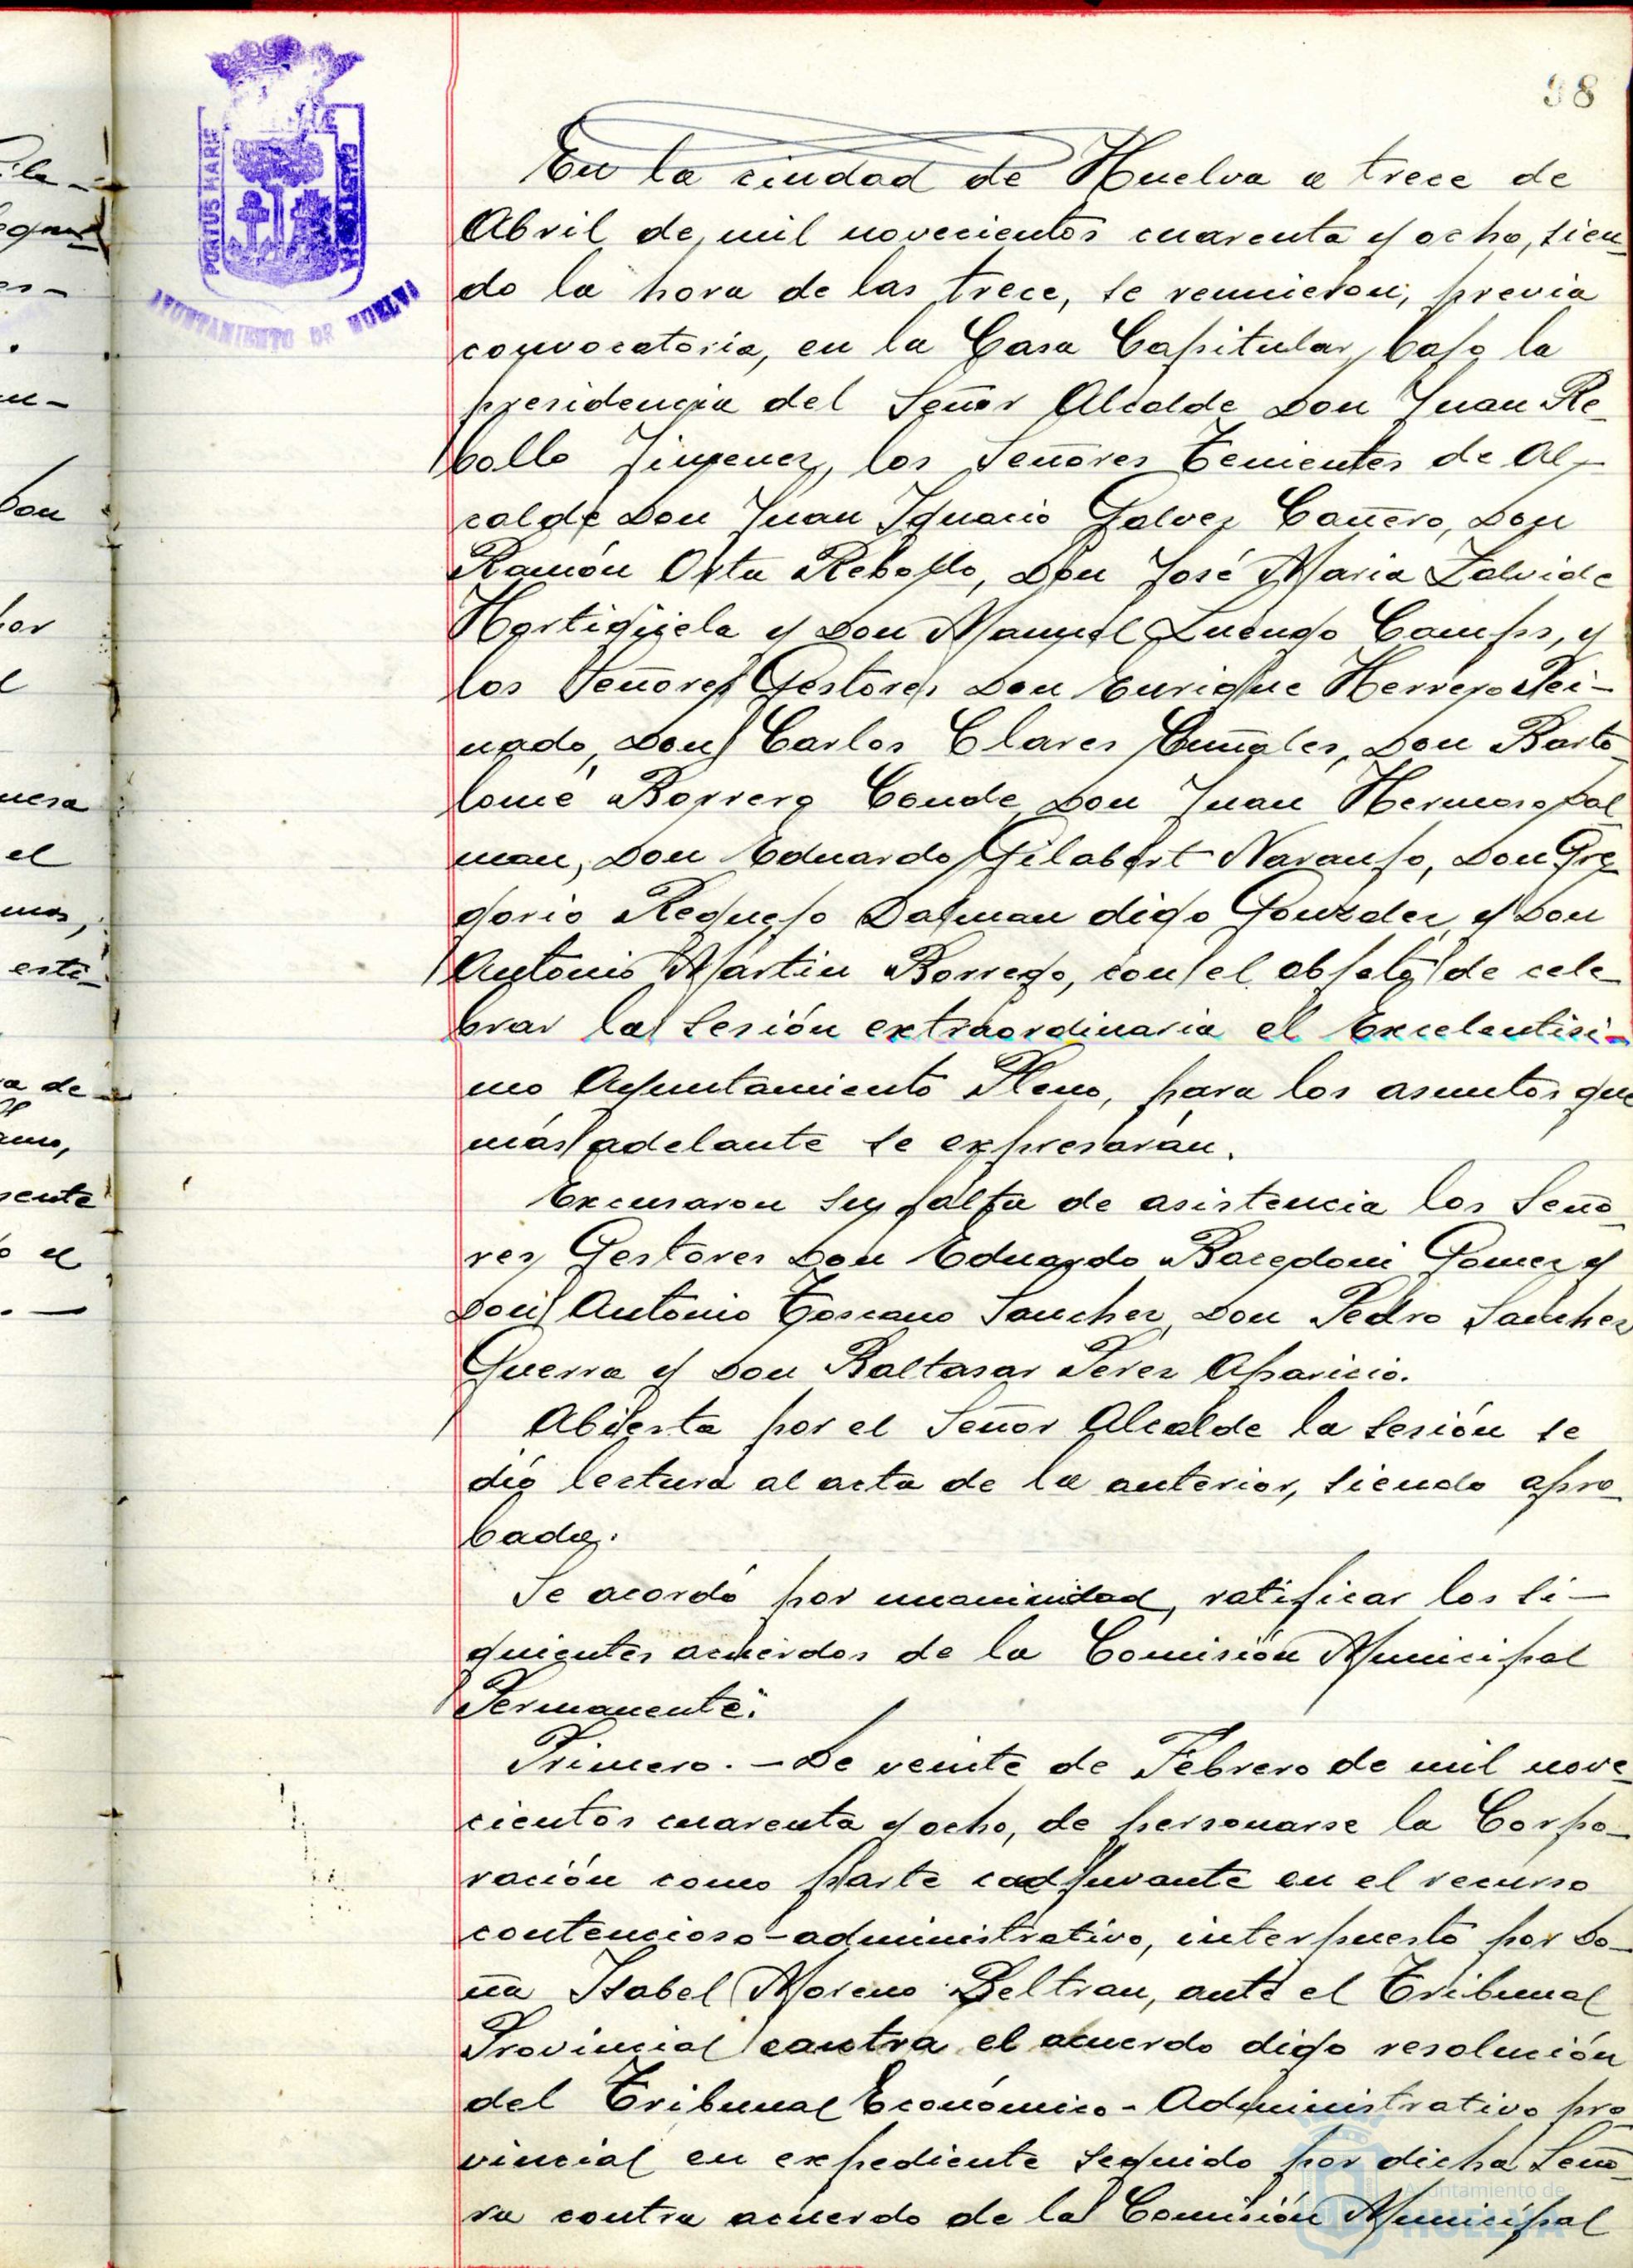 98
PORTUS MARIS
AYUNTAMIENTO DE HUELVA
En la ciudad de Huelva a trece de
Abril de mil novecientos cuarenta y ocho, sien-
do la hora de las trece, se reunieron, previa
convocatoria, en la Casa Capitular, bajo la
presidencia del Señor Alcalde Don Juan Re-
bollo Jimenez, los Señores Tenientes de Al-
calde Don Juan Ignacio Galvez Cañero, Don
Ramón Orta Rebollo, Don José Maria Zalvide
Hortigüela y Don Manuel Luengo Camps, y
los Señores Gestores Don Enrique Herrero Pei-
nado, Don Carlos Clares Don Barto-
lomé Borrero Conde, Don Juan Hermoso Dal
man, Don Eduardo Gilabert Naranjo, Don Gre-
gorio Requejo Dalman digo Gonzalez, y Don
Antonio Martin Borrego, con el objeto de cele-
brar la sesión extraordinaria el Excelentisi-
mo Ayuntamiento Pleno, para los asuntos que
más adelante se expresarán.
Excusaron su falta de asistencia los Seño-
res Gestores Don Eduardo Gomez y
Don Antonio Toscano Sanchez, Don Pedro Sanchez
Guerra y Don Baltasar Perez Aparicio.
Abierta por el Señor Alcalde la sesión se
dió lectura al acta de la anterior, siendo apro-
bada.
Se acordó por unanimidad, ratificar los si-
guientes acuerdos de la Comisión Municipal
Permanente:
Primero.- De veinte de Febrero de mil nove-
cientos cuarenta y ocho, de personarse la Corpo-
ración como parte coadyuvante en el recurso
contencioso-administrativo, interpuesto por Do-
ña Isabel Moreno Beltran, ante el Tribunal
Provincial contra el acuerdo digo resolución
del Tribunal Económico-Administrativo pro-
vincial en expediente seguido por dicha Seño-
ra contra acuerdo de la Comisión Municipal
Ayuntamiento de
HUELVA